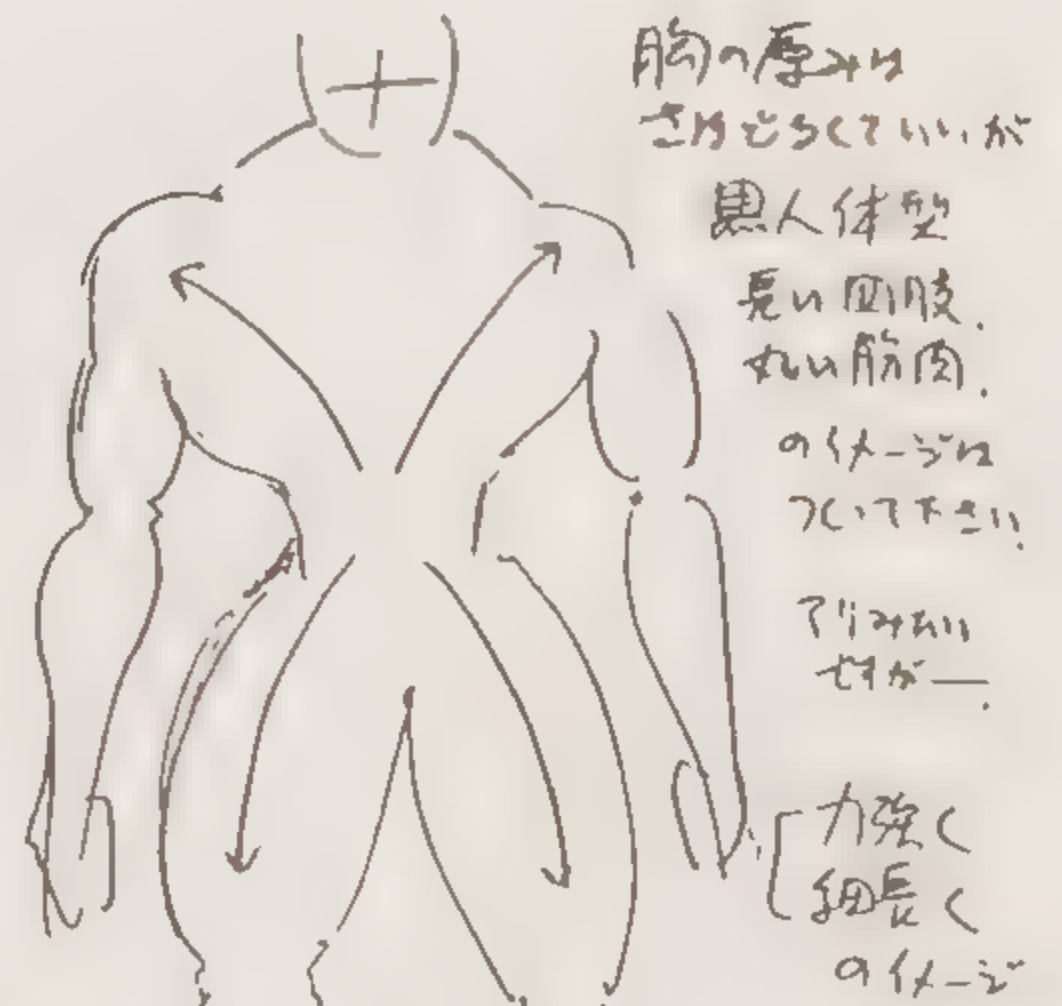 胸の厚みは
さほどなくていいが
黒人体型
長い四肢.
丸い筋肉.
のイメージは
つくって下さい.
アリみたい
ですが―.
力強く
細長く
のイメージ